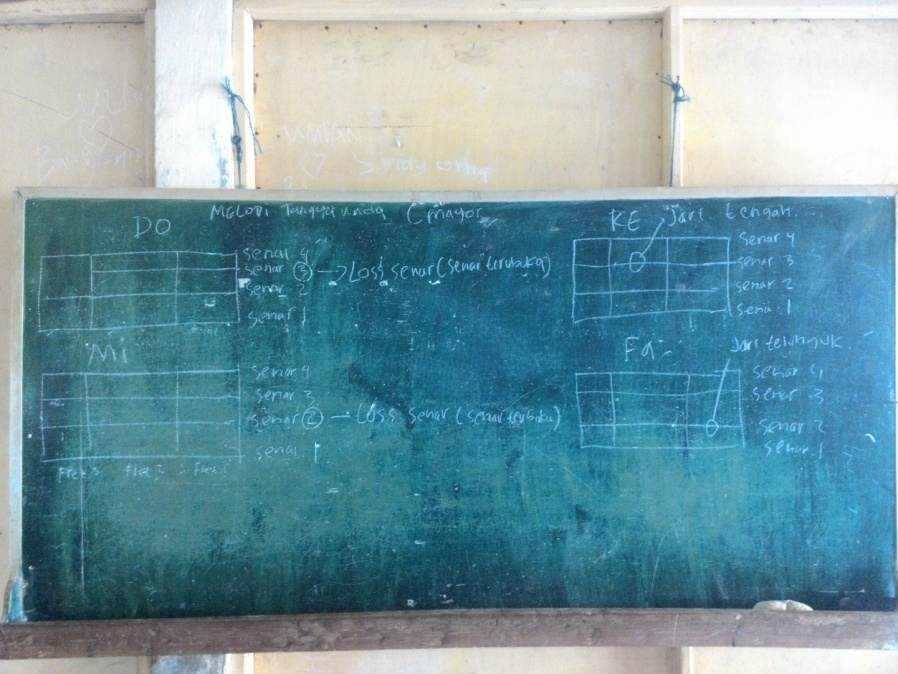 MELODI Tangga nada C mayor
DO
senar 4
senar 3 -> Loss senar (senar terbuka)
senar 2
senar 1
RE
Jari tengah
senar 4
senar 3
senar 2
senar 1
Mi
senar 4
senar 3
senar 2 - Loss senar (senar terbuka)
senar 1
Fret 3 Fret 2 Fret 1
Fa
Jari telunjuk
senar 4
senar 3
senar 2
senar 1